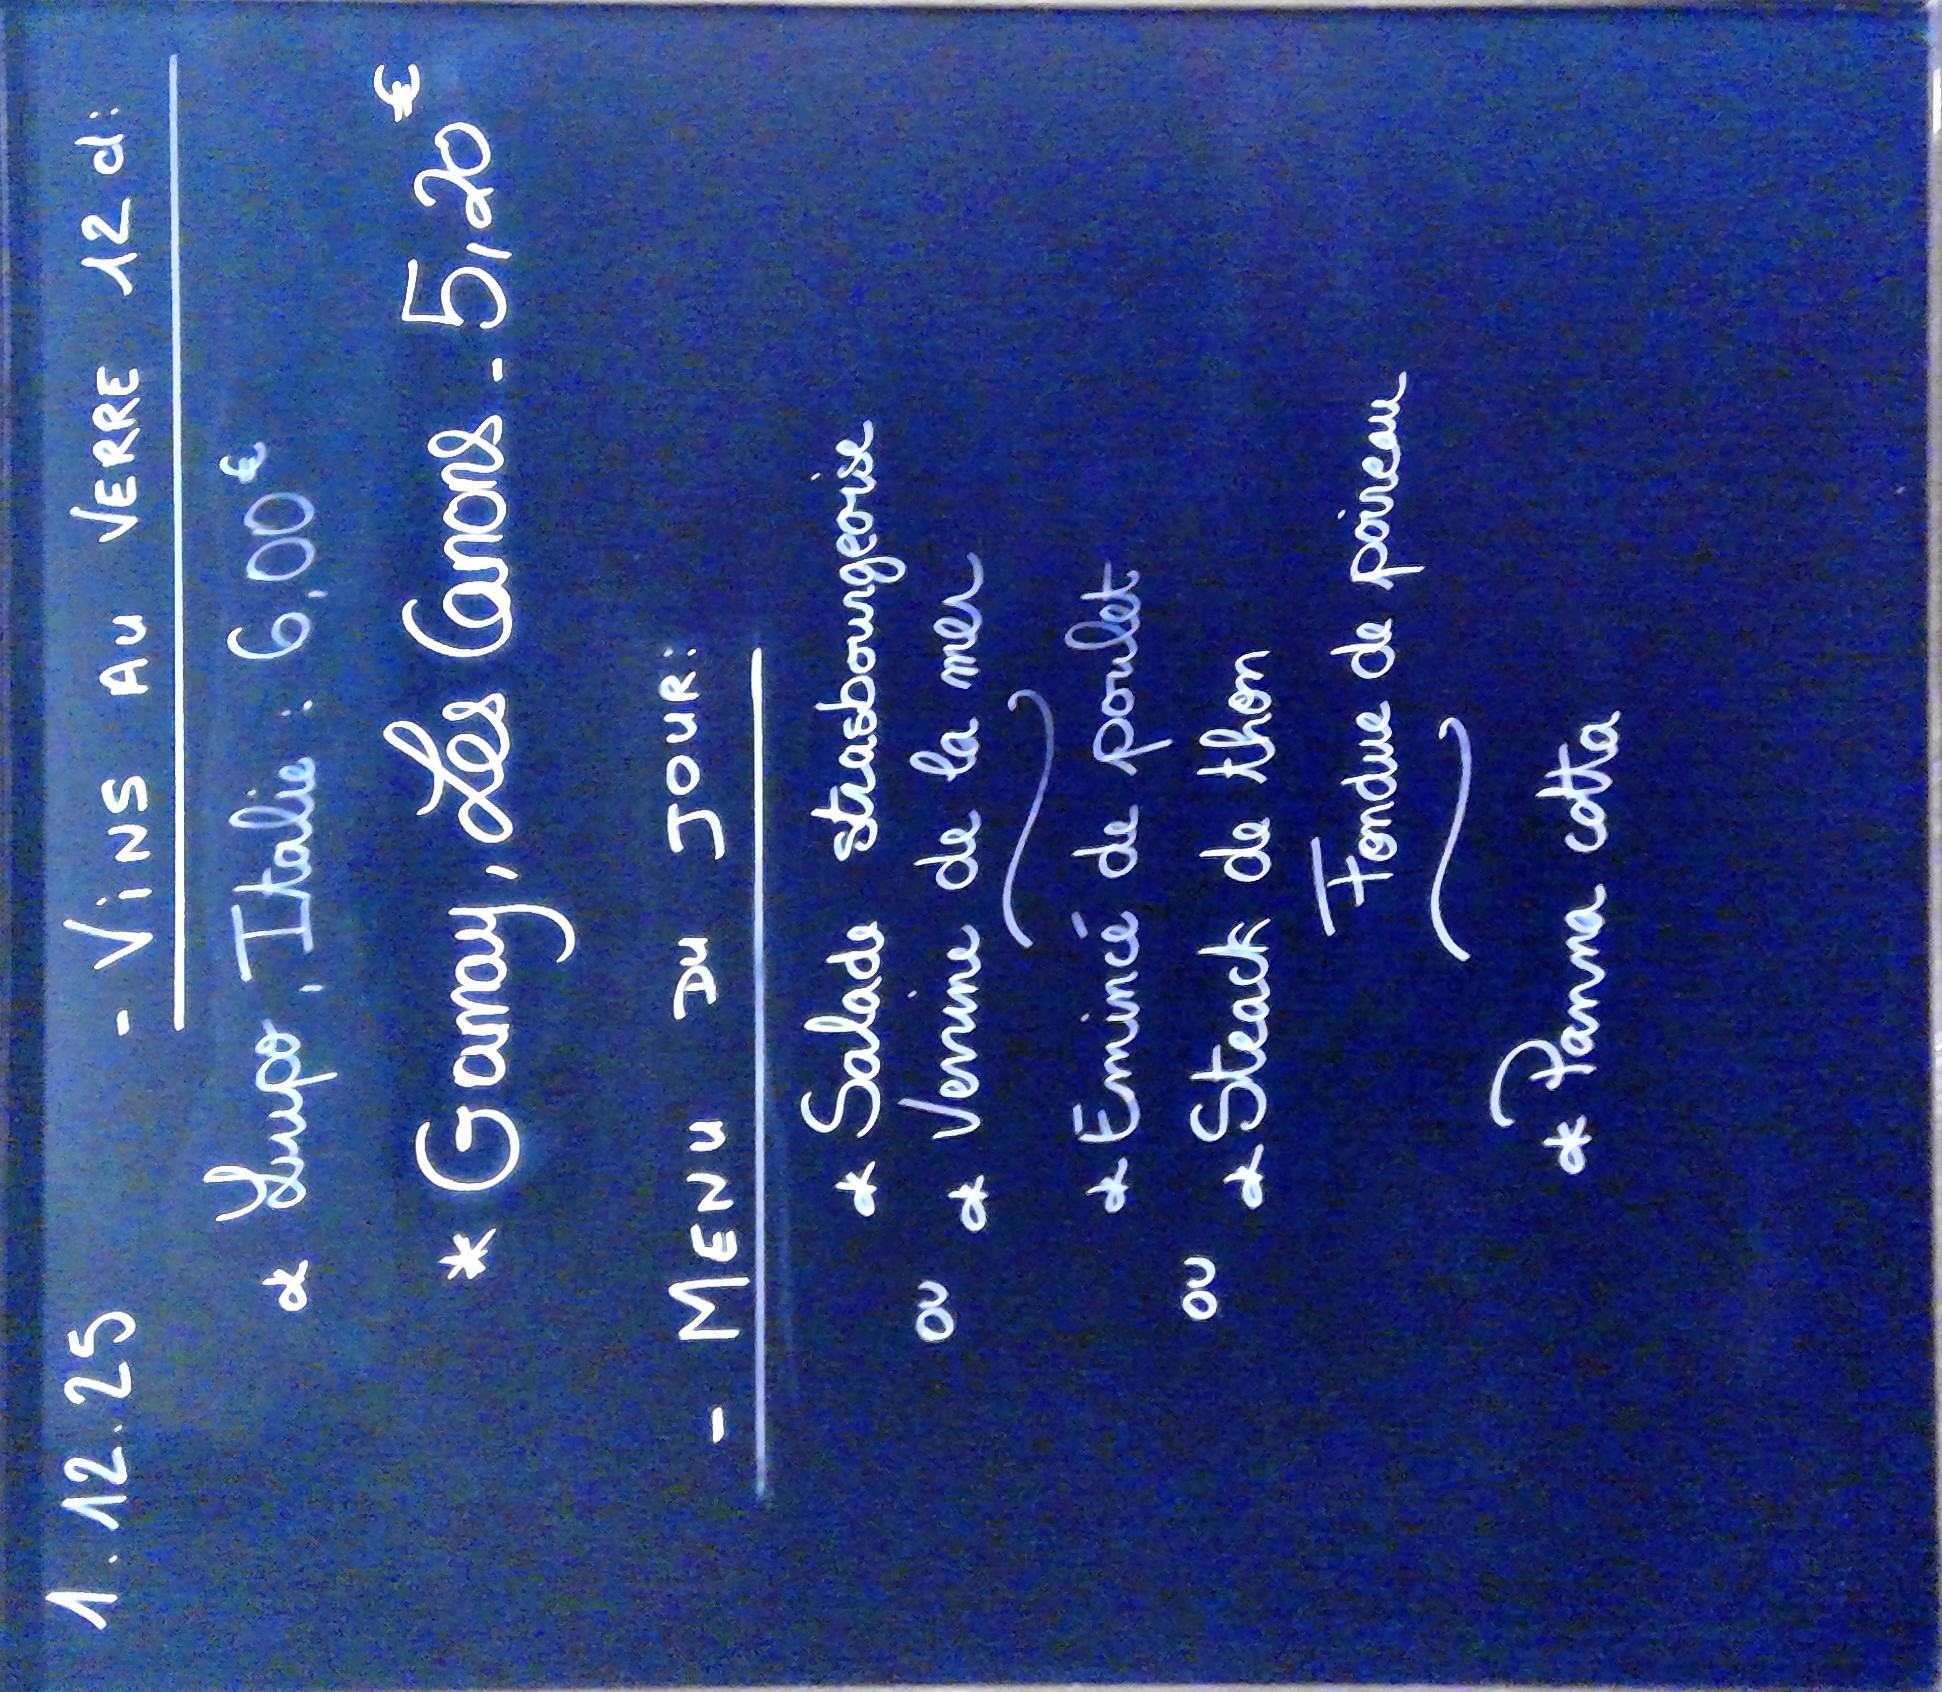 1.12.25
- VINS AU VERRE 12 cl:
* Lupo, Italie : 6,00€
* Gamay, Les Canons - 5,20€
- MENU DU JOUR:
* Salade strasbourgeoise
ou * Verrine de la mer
* Emincé de poulet
ou * Steack de thon
Fondue de poireau
* Panna cotta